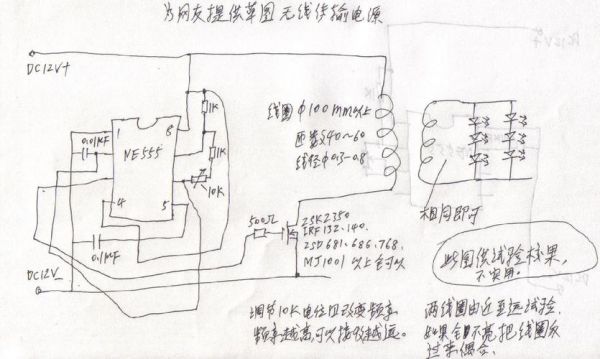 为网友提供草图 无线传输电源
DC12V+
1
8
0.01MF
NE555
4
5
1K
1K
10K
0.1MF
DC12V-
线圈Φ100mm以上
匝数40~60
线径Φ0.3~0.8
500Ω
2SK2350
IRF132.140.
2SD681.686.768.
MJ1001 以上也可以
相同即可
此图供试验效果,
不实用。
调节10K电位可改变频率
频率越高可以接收越远。
两线圈由近至远试验.
如果全不亮把线圈反
过来偶合.